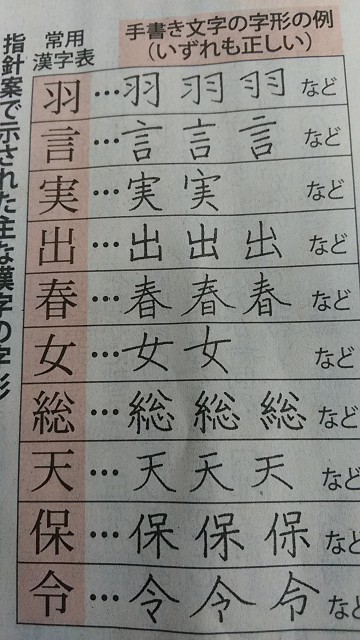 指針案で示された主な漢字の字形
常用
漢字表
手書き文字の字形の例
(いずれも正しい)
羽…羽 羽 羽 など
言…言 言 言 など
実…実 実 など
出…出 出 出 など
春…春 春 春 など
女…女 女 など
総…総 総 総 など
天…天 天 天 など
保…保 保 保 など
令…令 令 令 など